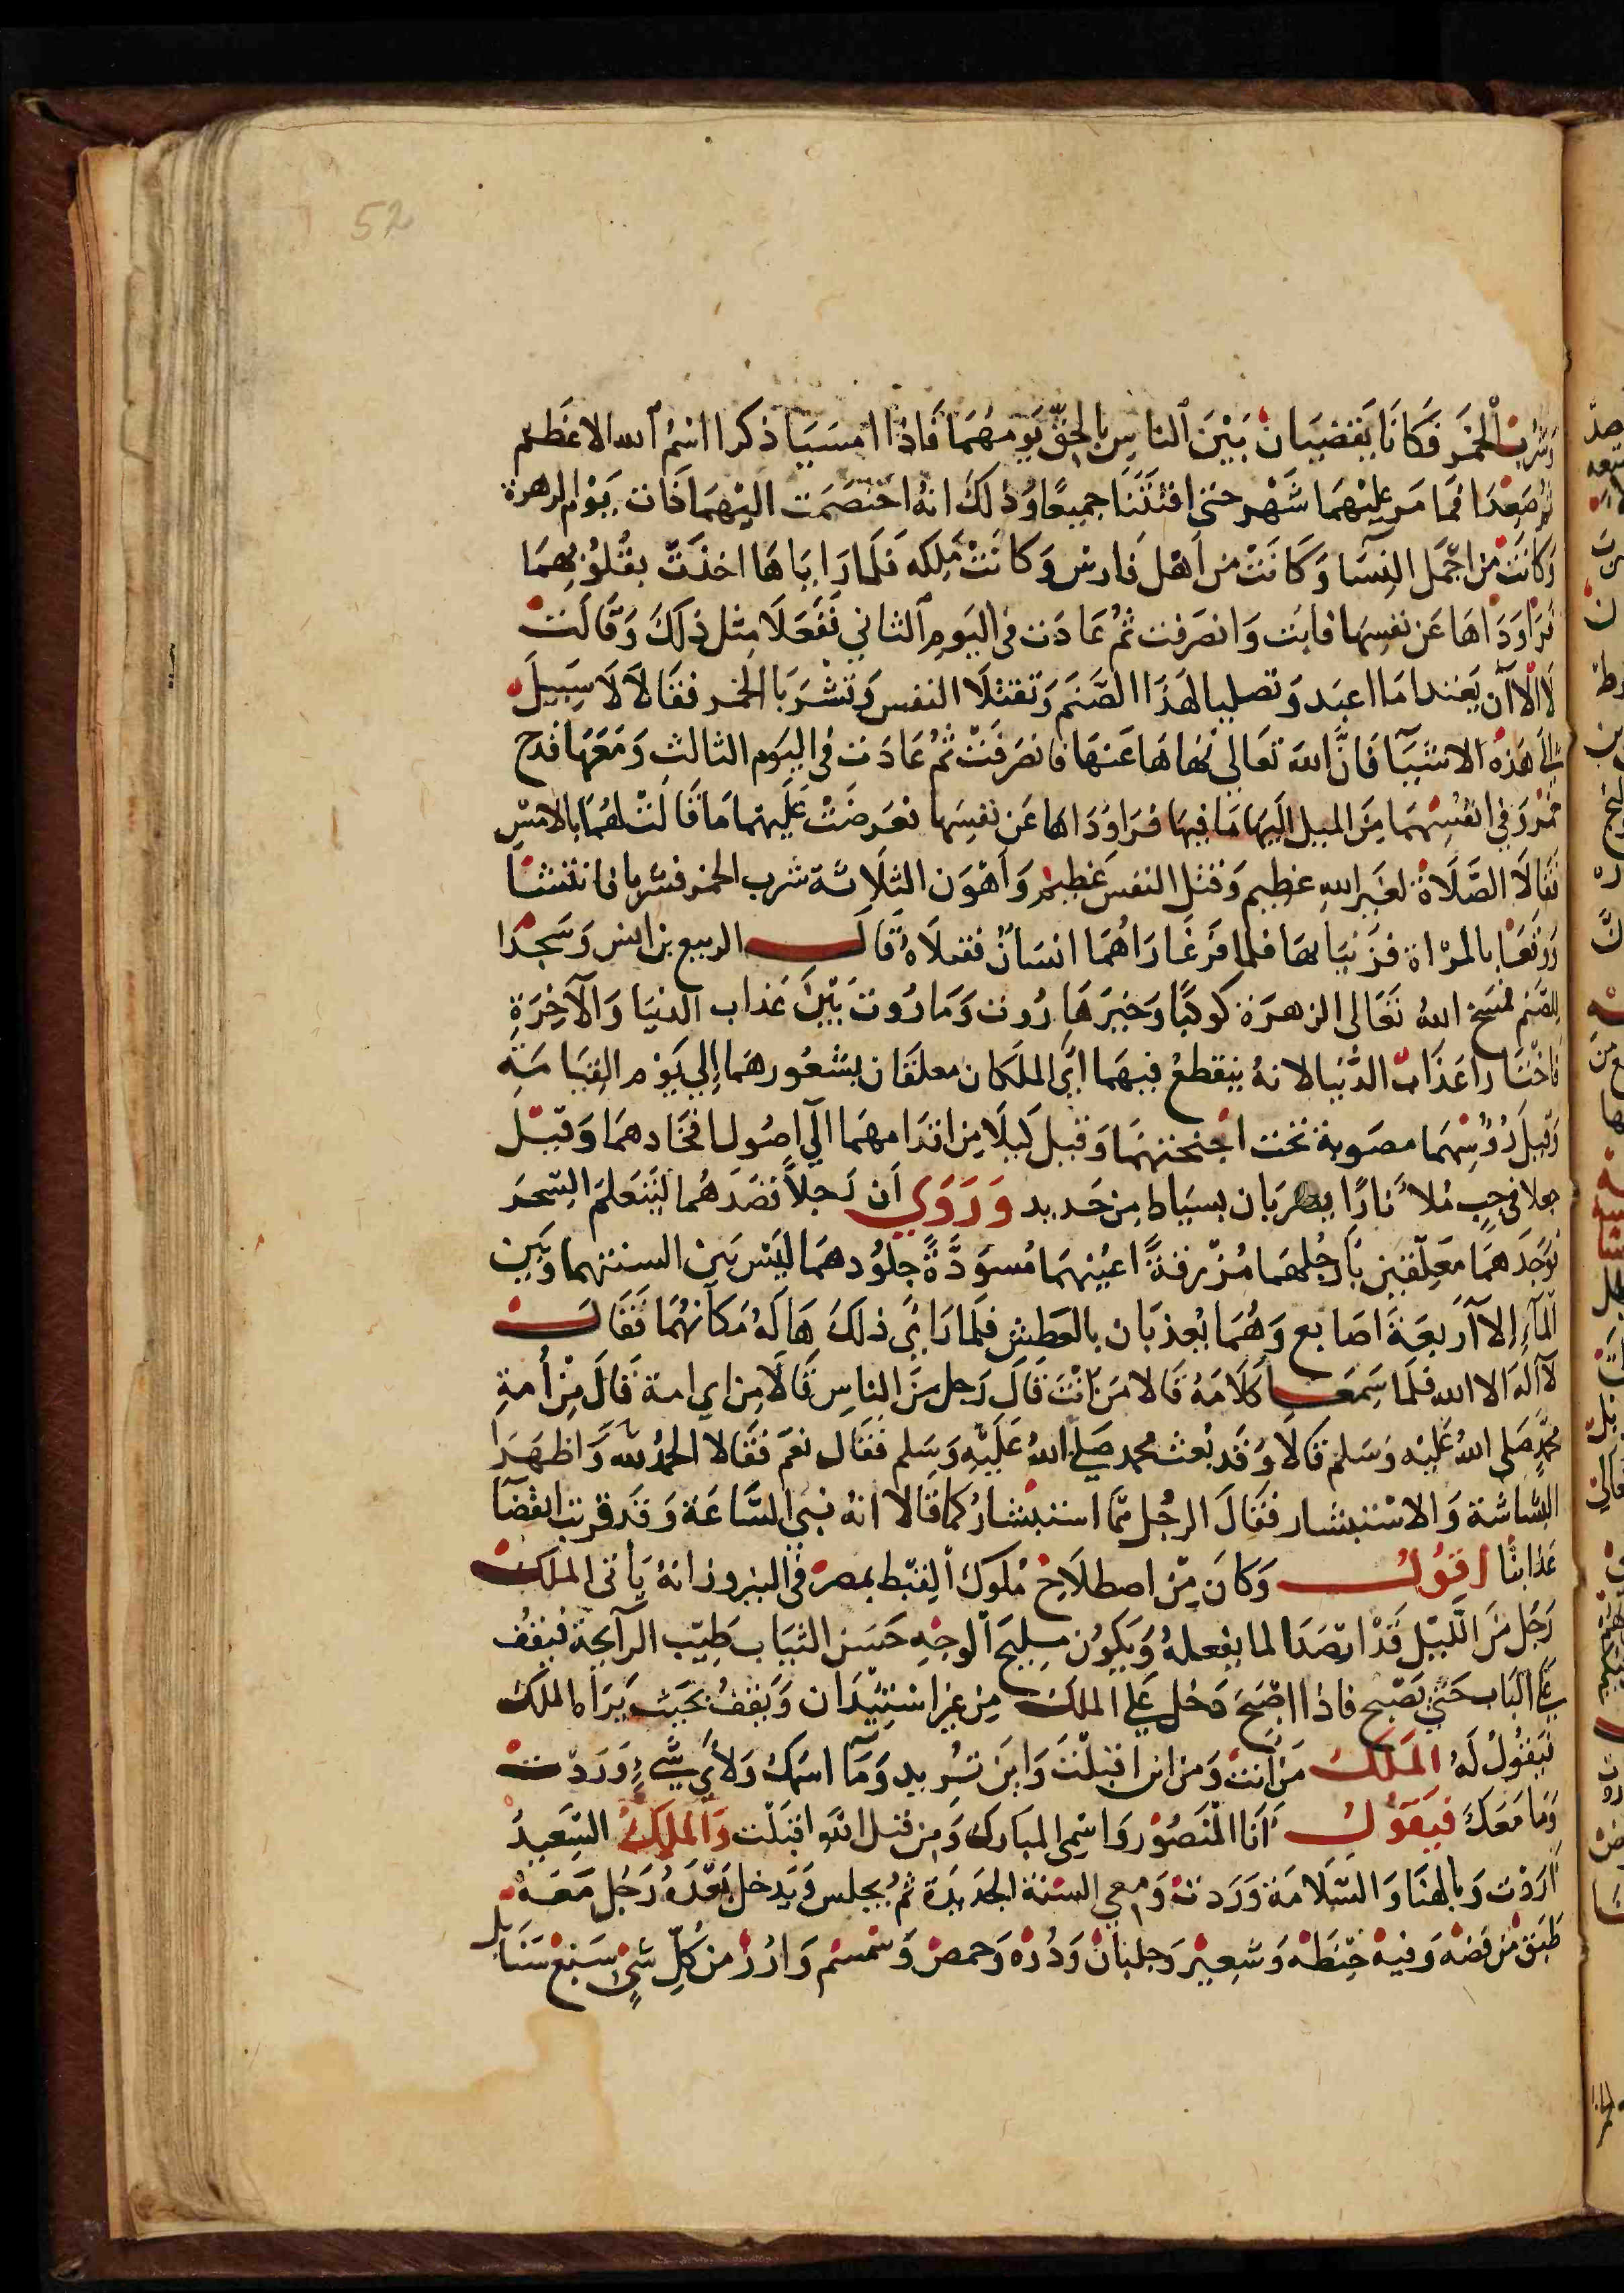 52
وَشُرب الْخَمْر فَكَانَا يَقضيَان بَيْنَ الناسِ بِالحَقّ يَومهُمَا فَاذا امسَيَا ذكرا اسْمُ الله الاعَظم
ثم صَعِدَا فمَا مَر عليْهمَا شَهْر حتى افتَتَنَا جميعًا وَذلكَ انهُ احتصَمَت اليْهمَا ذَات يَوْم الزهرة
وَكانَت مْن اجْمَل النِسَا وَكَانَتْ من اَهْل فارسْ وَكا نَتْ مَلِكه فلمارَايَاهَا اخذَتْ بقُلوْبِهمَا
فرَاوَدَاهَا عَن نفسِهَا فابَت وَانصَرفت ثمُ عَادَت فى اليَومِ الثاني فَفَعَلَا مثل ذلكَ وَقَالَتْ
لَا الْا اَن يَعْبدا مَا اعبَد وَتصليا لهَذَا الصَّنَم وَتقتلَا النفس وَتَشْرَبَا الخمر فقالا لَا سَبيلَ
الى هَذه الاشيَآ فَانَّ الله تعَالي نهاهَا عَنهَا فانصَرفَتْ ثمُ عَادَت فى اليوَم الثالث وَمَعَهَا قدح
خمْر وَفي انفسِهمَا مِنَ الميل الَيهَا مَا فيهَا فرَاوُدَاهَا عَن نفسِهَا فعَرضَتْ عَلَيهمَا مَا قالتْ لهُمَا بالامسِ
فقالَا الصَّلَاةْ لغَير الله عظيم وَقتل النفس عَظيم وَاهْوَن الثلَاثة شرب الخمر فشربا فانتشا
وَوقعَا بالمرْاة فزَنيَا بهَا فلما فرَغَا رَاهُمَا انسَانٌ فقتلَاهُ قَالَ الربيع بن انس وَسَجدَا
للصَّنم فمسَخ اللهُ تعَالى الزهرَة كوكبًا وَخيرَ هَارُوت وَمَارُوتَ بَيْنَ عَذاب الدنيَا وَالآخِرَةِ
فاخْتَارا عَذَابَ الدُّنيَا لانهُ ينقطعْ فيهمَا اىَّ الملَكان معلقَان بشعُورهمَا اِلي يَوْم القِيَامَةِ
وَقيلَ رُوُسِهمَا مصَوبة تحْت اجْنحتهمَا وَقيل كبلَا مِن اقدَامهمَا الَي اصُول افخَادهمَا وَقيْل
جعلا فى جب مُلاَ نارًا يضربَان بسيَاط مِن حَديد وَرَوَي اَن رَجلاً قصَدَهُما ليَتَعَلمَ السّحَر
فوَجدَهمَا مَعلّقين بأرجُلهمَا مُزْرقةً اعيُنهمَا مُسوَدَّةً جلُودهمَا ليْسَ بَين السنتهما وَبَين
المآءِ اِلا آربعَة اصَابع وَهُمَا يُعذبَان بالعَطِش فلما رَايَ ذلكَ هَالَهُ مَكَانهُمَا فَقَالت
لآ الهَ الا الله فلَما سَمعَا كلَامَهُ قالا مَن انتَ قَالَ رَجل مِنَ الناسِ قَالَا مِن اي امة قَالَ مِنْ أمةِ
محمَّد صَلى اللهُ عَليْه وَسَلم قالَا وَقَد بُعث محمد صَلي اللهُ عَلَيْهِ وَسَلم فقال نعَم فقالا الحَمدُ للهِ وَاظهَرَا
البشاشة وَالاسْتبشار فقَالَ الرجُل ممَّا استبشارُكما قالا انهُ نبى السَّاعَة وَقَد قربَ انقضآ
عَذابنَا اقوُل وَكانَ مِنْ اصطلَاحْ مُلوك القِبْط بمصرْ فى النيروز انهُ يَاتى الملكْ
رَجُل منَ اللَّيْل قَدْ ارصَد لما يفعلهُ وَيَكوُن مليحَ الوجْهِ حَسَن الثيَاب طَيّب الرآيحة فيَقفُ
عَلى البَاب حَتىَّ يصْبح فاذا اصْبَحَ دَخل عَلى الملك مِن غير اسْتيذَان وَيَقفُ بحَيْث يَرَاه الملك
فيَقُولُ لَهُ المَلكُ مَن اَنتْ وَمن اين اقبلتَ وَاين تُريد وَمَآ اسْمك وَلأيَ شَيءٍ وَرَدْتَ
وَمَا مَعَكَ فيَقوُل اَنا المْنصُوْر وَاسْمي المبَارك وَمِن قبَل اللَهِ اقبَلت وَالمَلكُ السَّعِيدُ
اَرَدْت وَبالهنَا وَالسَّلَامَة وَرَدتْ وَمعي السَّنة الجديدَة ثمُ يجلس وَيدخل بعْدَهُ رَجُل مَعَهُ
طَبَق مْن فضهْ وَفيهْ حِنطَهْ وَشعِيْر وَجلبَانْ وَذرَهْ وَحمصْ وَسْمسْم وَارُزْ من كلِّ شَيٍ سَبْع سَنَابل